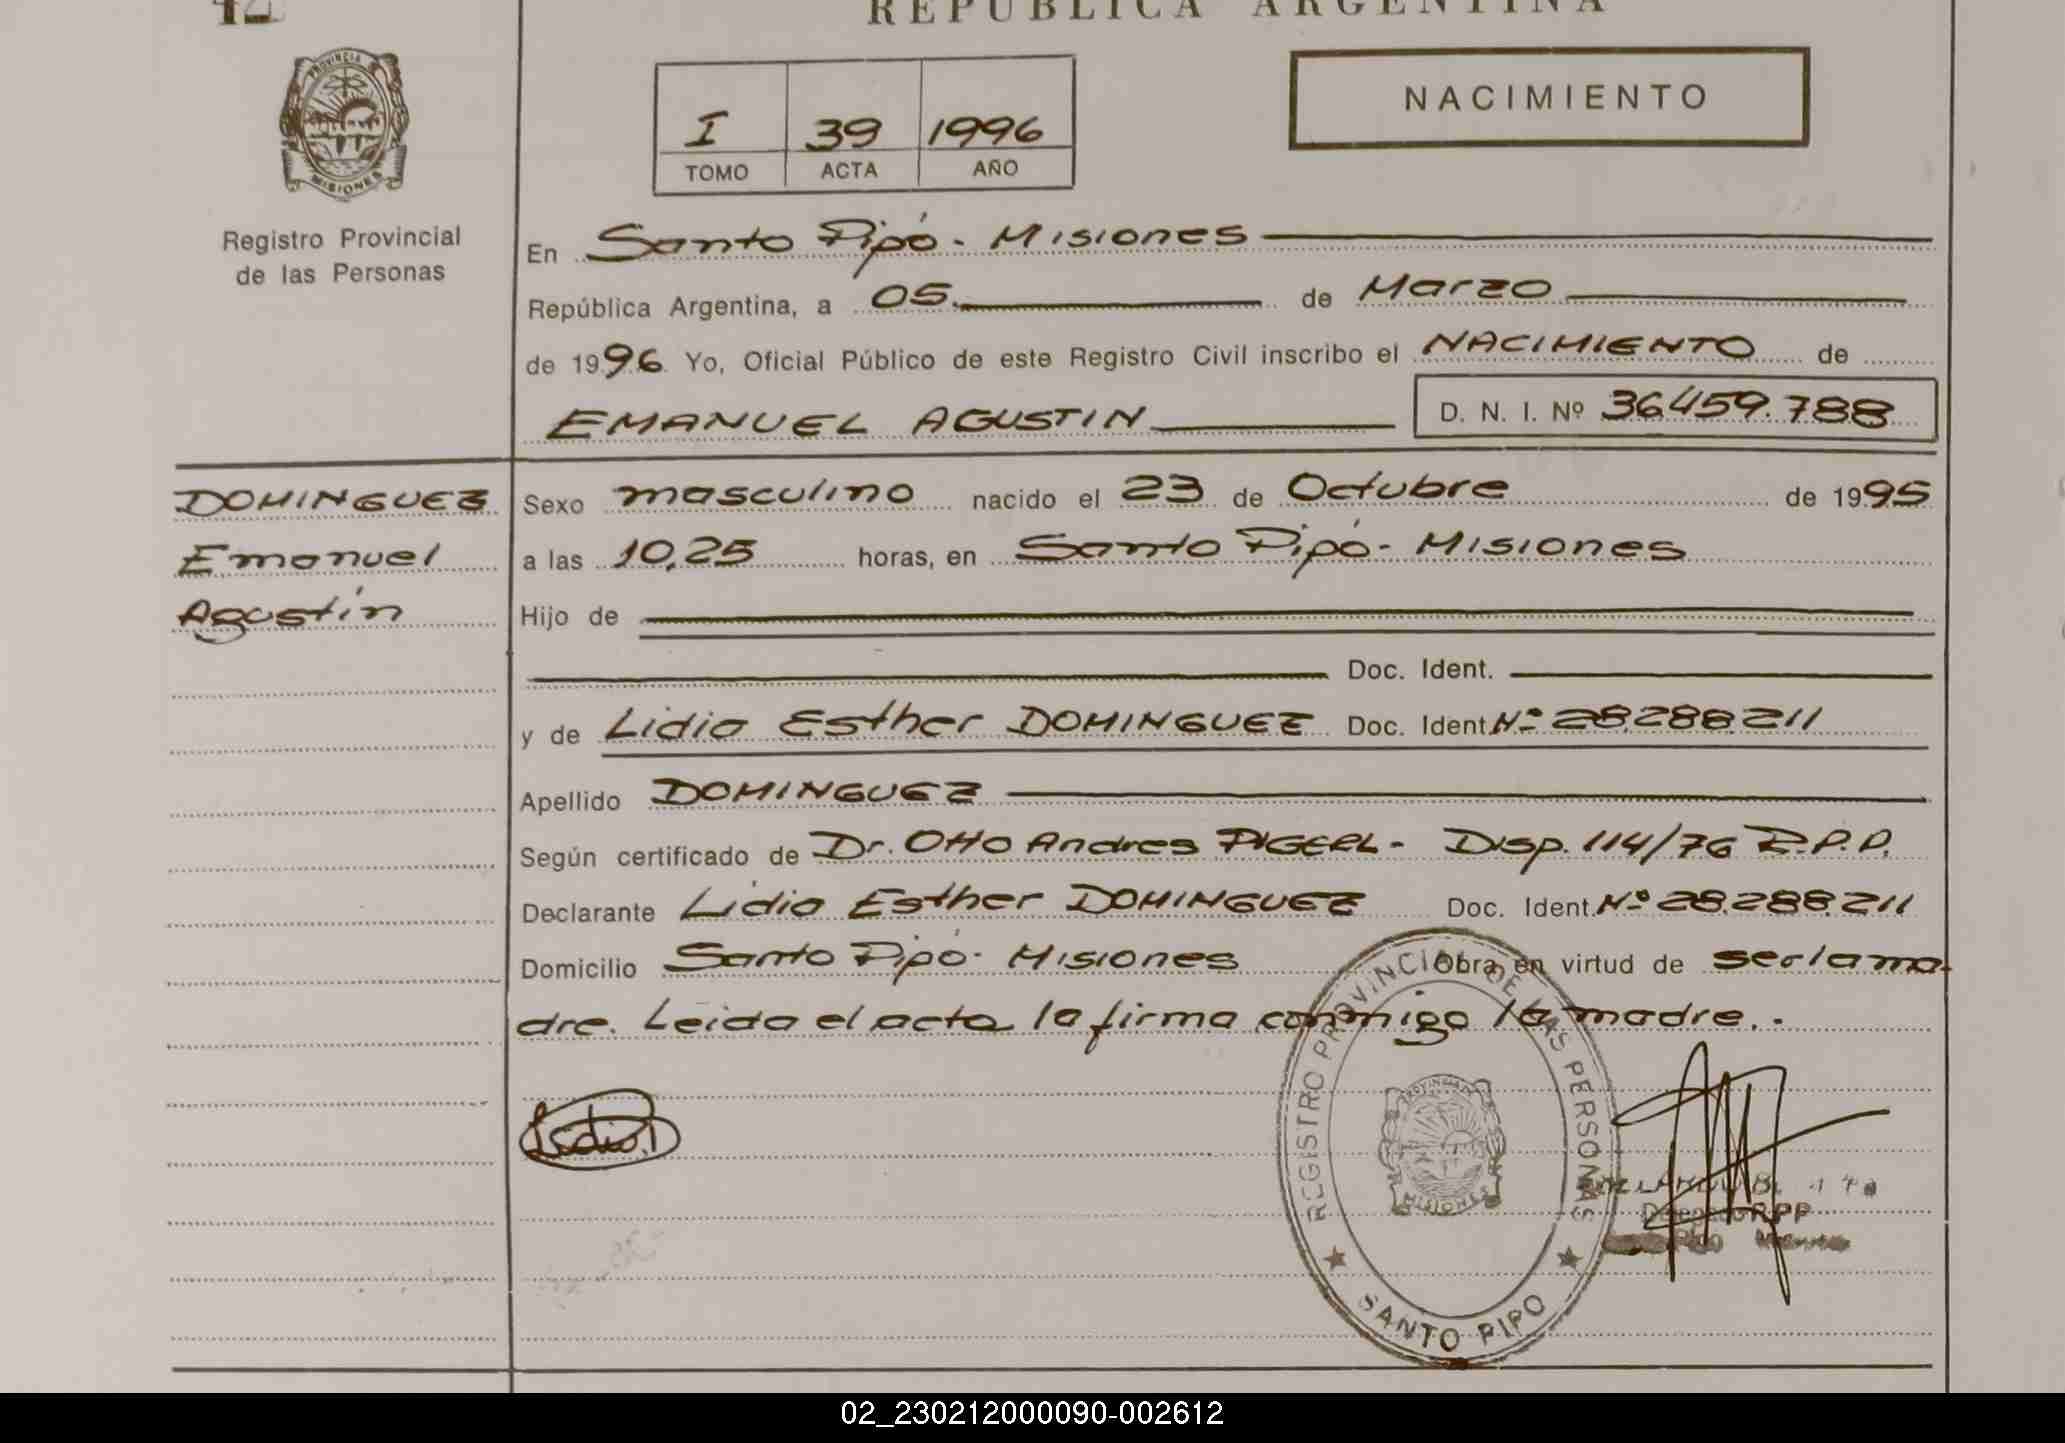 42
REPUBLICA ARGENTINA
PROVINCIA
MISIONES
Registro Provincial
de las Personas
I 39 1996
TOMO ACTA AÑO
NACIMIENTO
En Santo Pipó - Misiones
República Argentina, a 05 de Marzo
de 1996 Yo, Oficial Público de este Registro Civil inscribo el NACIMIENTO de
EMANUEL AGUSTIN D. N. I. Nº 36.459.788
DOMINGUEZ
Emanuel
Agustín
Sexo masculino nacido el 23 de Octubre de 1995
a las 10,25 horas, en Santo Pipó - Misiones
Hijo de
Doc. Ident.
y de Lidia Esther DOMINGUEZ Doc. Ident. Nº 28.288.211
Apellido DOMINGUEZ
Según certificado de Dr. Otto Andres - Disp. 114/76 R.P.P.
Declarante Lidia Esther DOMINGUEZ Doc. Ident. Nº 28.288.211
Domicilio Santo Pipó - Misiones Obra en virtud de ser la ma-
dre. Leida el acta la firma conmigo la madre.-
Lidia D
REGISTRO PROVINCIAL DE LAS PERSONAS
PROVINCIA
MISIONES
SANTO PIPO
Delegado RPP
02_230212000090-002612